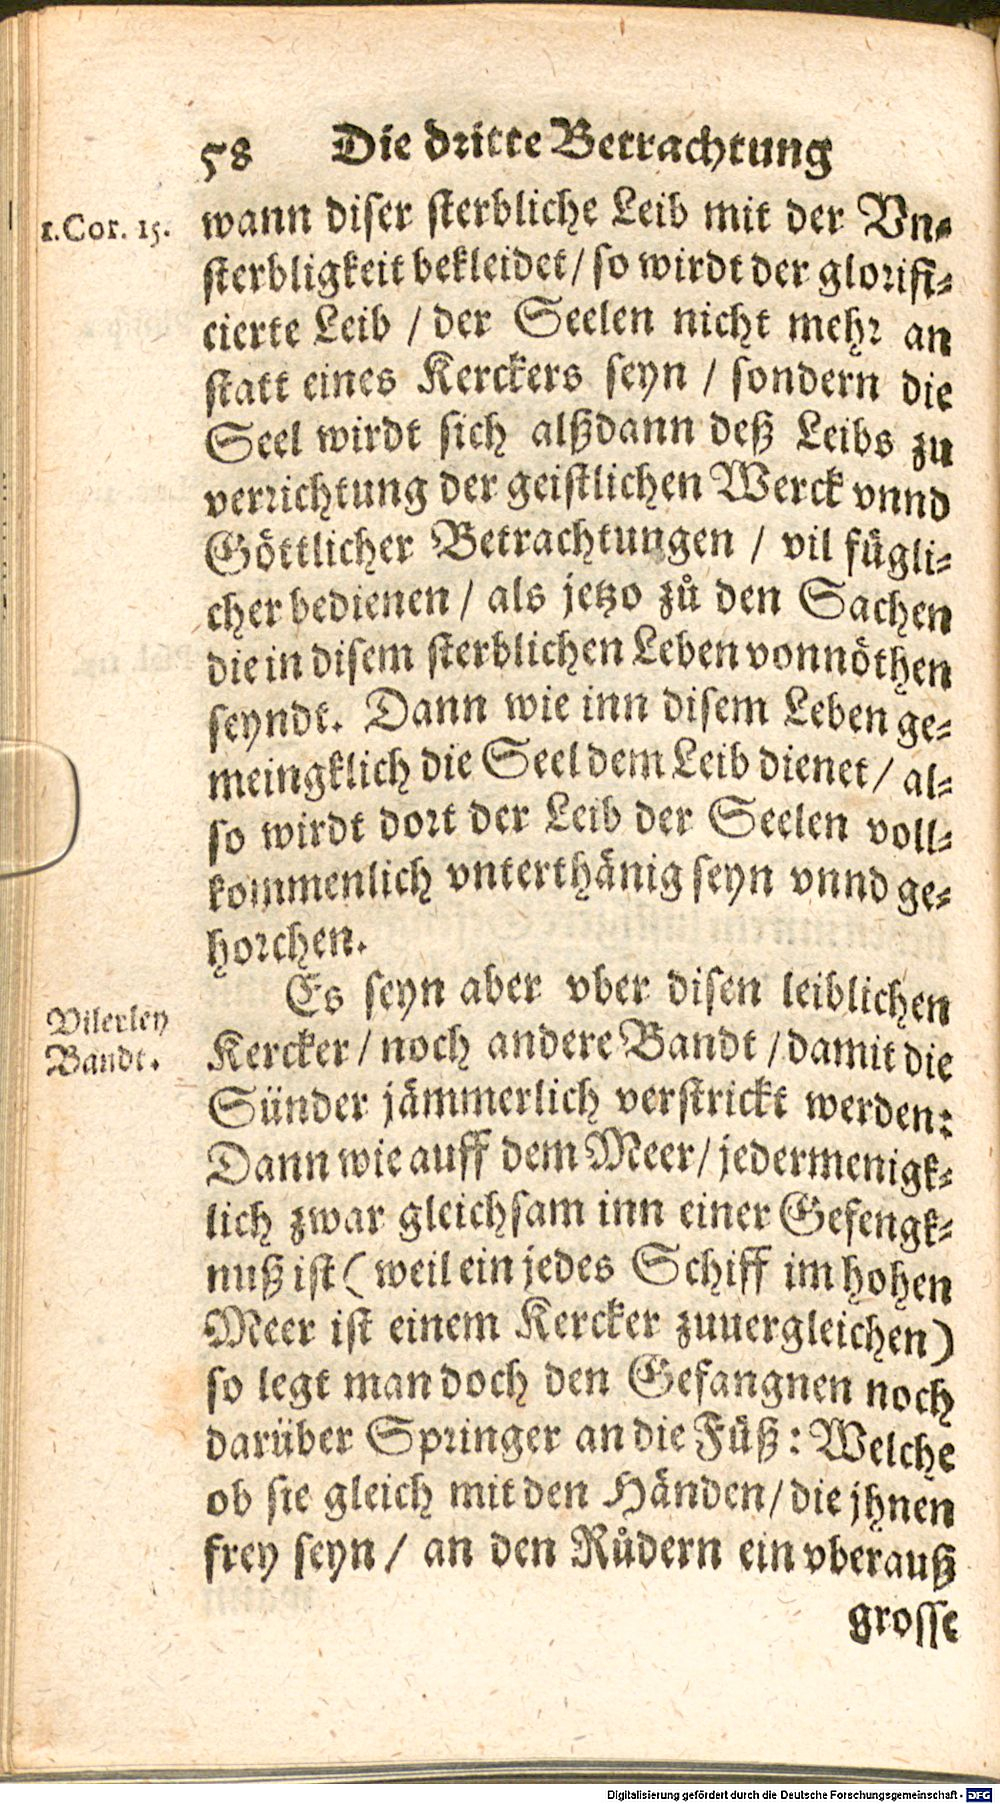 58 Die dritte Betrachtung
1. Cor. 15.
wann diser sterbliche Leib mit der Vn-
sterbligkeit bekleidet / so wirdt der glorifi-
cierte Leib / der Seelen nicht mehr an
statt eines Kerckers seyn / sondern die
Seel wirdt sich alßdann deß Leibs zu
verrichtung der geistlichen Werck vnnd
Göttlicher Betrachtungen / vil fügli-
cher bedienen / als jetzo zů den Sachen
die in disem sterblichen Leben vonnöthen
seyndt. Dann wie inn disem Leben ge-
meingklich die Seel dem Leib dienet / al-
so wirdt dort der Leib der Seelen voll-
kommenlich vnterthänig seyn vnnd ge-
horchen.
Vilerley
Bandt.
Es seyn aber vber disen leiblichen
Kercker / noch andere Bandt / damit die
Sünder jämmerlich verstrickt werden:
Dann wie auff dem Meer / jedermenigk-
lich zwar gleichsam inn einer Gefengk-
nuß ist ( weil ein jedes Schiff im hohen
Meer ist einem Kercker zuuergleichen)
so legt man doch den Gefangnen noch
darüber Springer an die Füß : Welche
ob sie gleich mit den Händen / die jhnen
frey seyn / an den Růdern ein vberauß
grosse
Digitalisierung gefördert durch die Deutsche Forschungsgemeinschaft - DFG